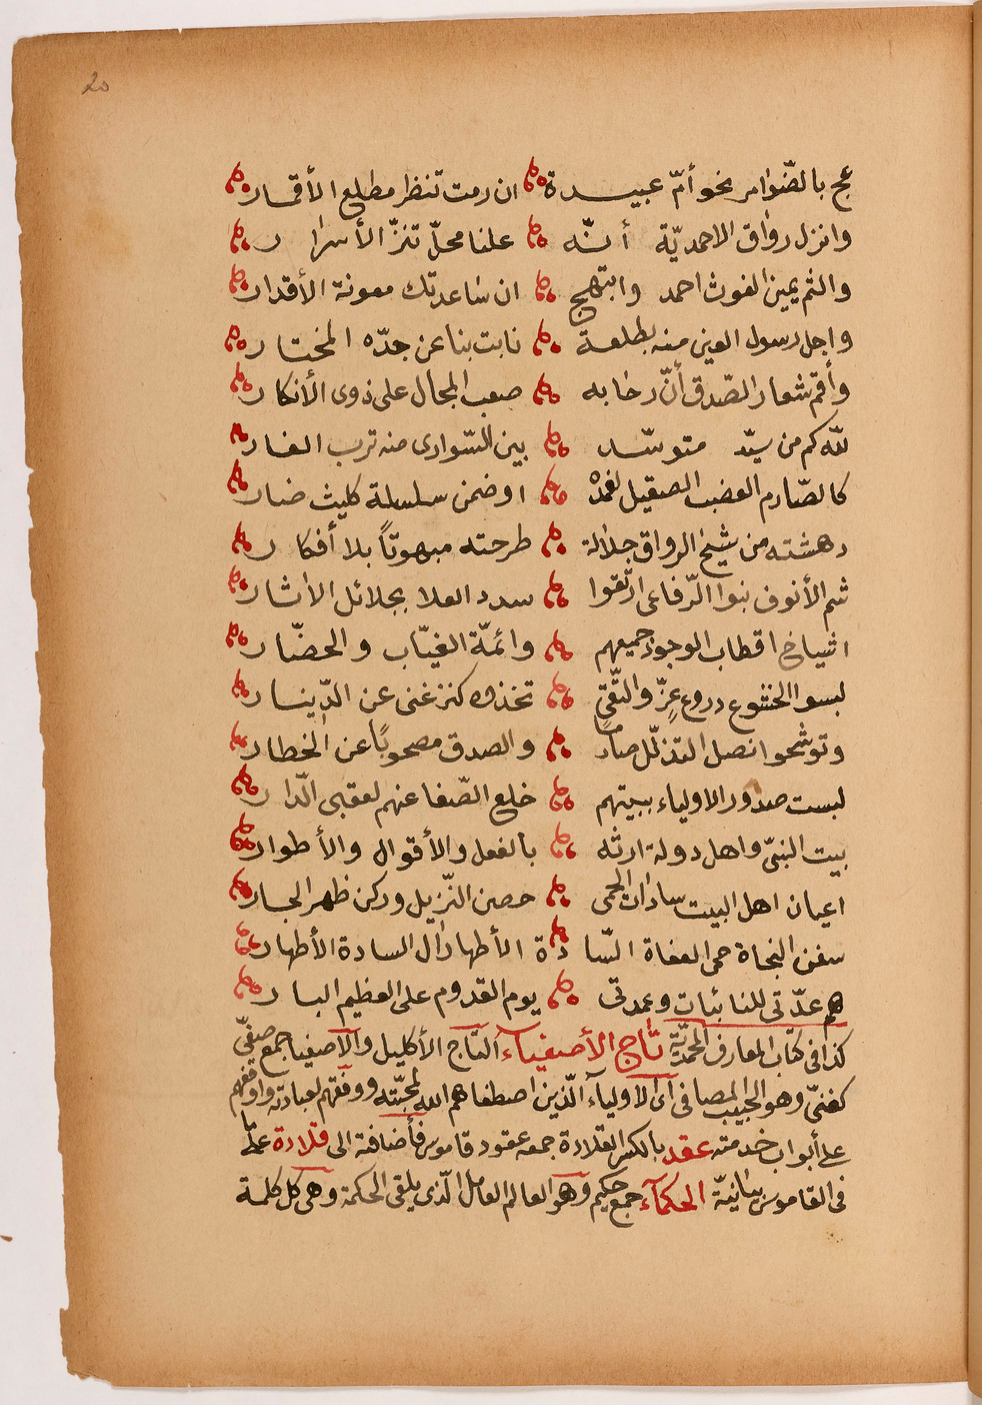 20
عج بالضّوامر نحو أمّ عبيدة ان رمت تنظر مطلع الأقمار
وانزل رواق الاحمديّة أنّه علنا محلّ تنزّ الأسرار
والثم يمين الغوث احمد وابتهج ان ساعدتك معونة الأقدار
واجل رسول العين منه بطلعة نابت بنا عن جدّه المختار
وأقم شعار الصّدق أنّ رحابه صعب المجال على ذوى الأنكار
للّه كم من سيّد متوسّد بين السّوارى منه ترب الغار
كالصّارم العضب الصقيل لغمده اوضمن سلسلة كليث ضار
دهشته من شيخ الرواق جلالة طرحته مبهوتاً بلا أفكار
شم الأنوف بنوا الرّفاعى ارتّقوا سدد العلا بجلائل الاٰثار
اشياخ اقطاب الوجود جميعهم وائمّة الغيّاب والحضّار
لبسوا الخشوع دروع عزّ والتّقىٰ تخذوه كنز غنى عن الدّينار
وتوشحوا نصل التذلّل صامتًا والصدق مصحوبًا عن الخطار
لبست صدور الاولياء ببيتهم خلع الصّفا عنهم لعقبى الدّار
بيت النبىّ واهل دولة ارثه بالفعل والأقوال والأطوار
اعيان اهل البيت سادات الحمى حصن النّزيل وركن ظهر الجار
سفن النجاة حمى العفاة السّادة الأطهار اٰل السادة الأطهار
هم عدّتى للنائبات وعمدتى يوم القدوم على العظيم البار
كذا فى كتاب المعارف المحمديّة تاج الأصفياء التّاج الأكليل والاصفيا جمع صفىّ
كغنىّ وهو الحبيب المصافى اى الاولياء الّذين اصطفاهم الله لمحبّته ووفقهم لعبادته واوقفهم
على أبواب خدمته عقد بالكسر القلادة جمعه عقود قاموس فأضافته الى قلادة على ما
فى القاموس بيانيّة الحكماء جمع حكيم وهو العالم العامل الّذى يلقى الحكمة وهى كل كلمة